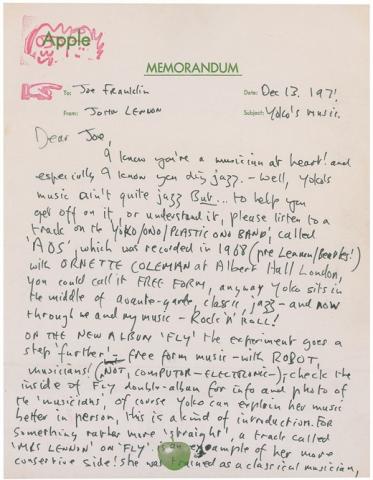 Apple
MEMORANDUM
To: Joe Franklin Date: Dec 13. 1971
From: JOHN LENNON Subject: Yoko's music.
Dear Joe,
I know you're a musician at heart! and
especially I know you dig jazz. - Well, Yoko's
music ain't quite jazz But... to help you
get off on it, or understand it, please listen to a
track on the 'YOKO/ONO/PLASTIC ONO BAND', called
'AOS', which was recorded in 1968 (pre Lennon/Beatles!)
with ORNETTE COLEMAN at Albert Hall London,
you could call it FREE FORM, anyway Yoko sits in
the middle of avante-garde, classic, jazz - and now
through me and my music - Rock 'n' Roll!
ON THE NEW ALBUM 'FLY' the experiment goes a
step further - free form music - with ROBOT,
musicians! (NOT, COMPUTOR-ELECTRONIC-); check the
inside of FLY double-album for info and photo of
the 'musicians', of course Yoko can explain her music
better in person, this is a kind of introduction. FOR
Something rather more 'straight', a track called
'MRS LENNON' on 'FLY' is an example of her more
conservtive side! she was trained as a classical musician,